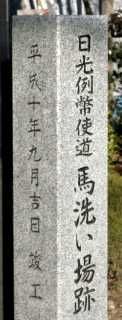 日光例幣使道 馬洗い場跡
平成十年九月吉日 竣工